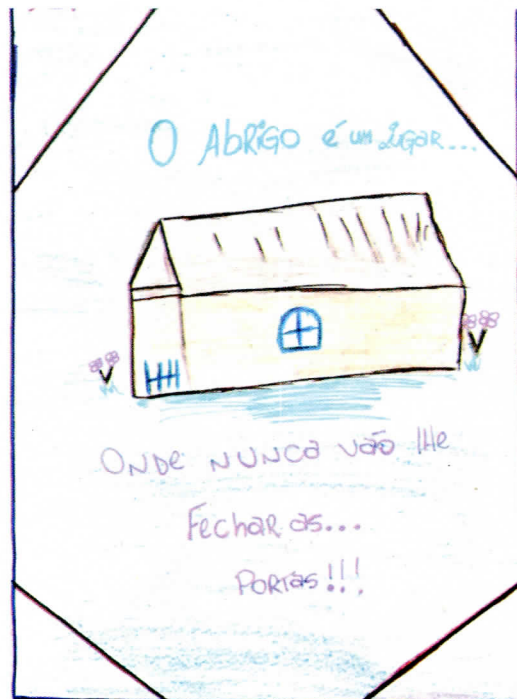 O ABRIGO é um lugar...
ONDe NUNCa vão lhe
Fechar as...
PORtas!!!